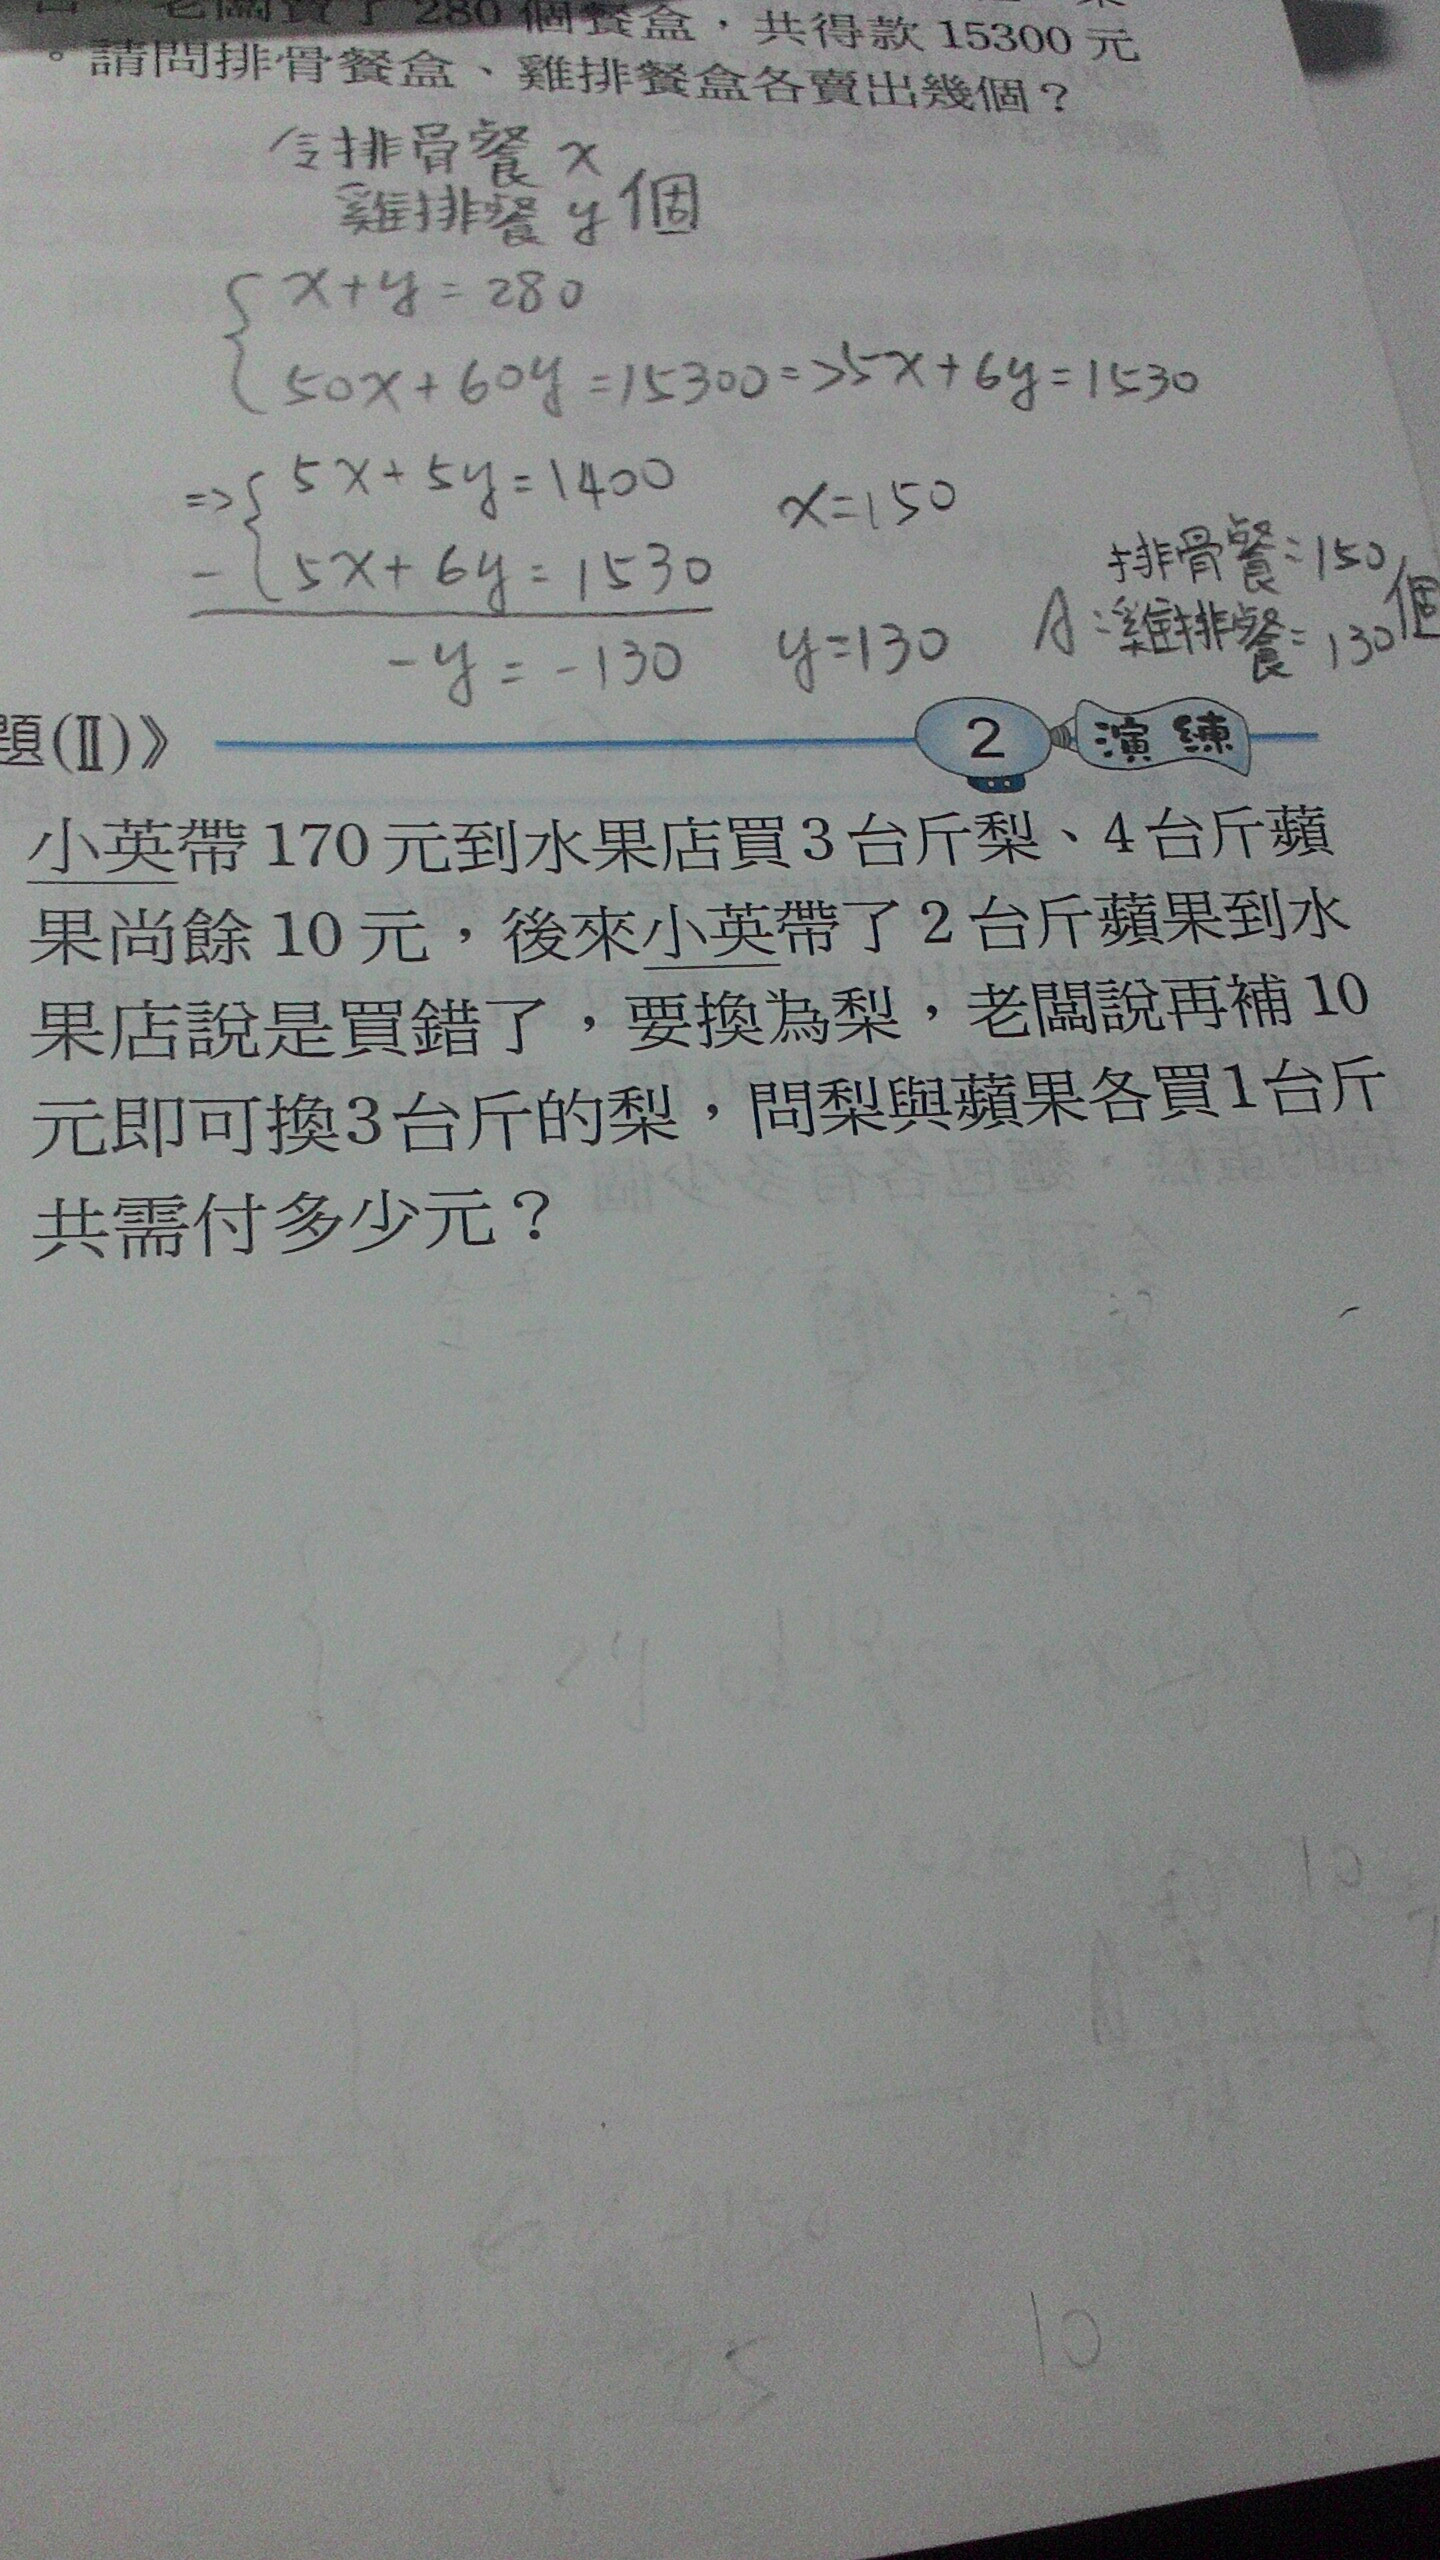 老闆賣了280個餐盒，共得款15300元
。請問排骨餐盒、雞排餐盒各賣出幾個？
令排骨餐 x
雞排餐 y 個
x+y=280
50x+60y=15300=>5x+6y=1530
=> 5x+5y=1400
- 5x+6y=1530
-y=-130
x=150
y=130
排骨餐=150
A:雞排餐=130個
題(Ⅱ)》
2 演練
小英帶170元到水果店買3台斤梨、4台斤蘋
果尚餘10元，後來小英帶了2台斤蘋果到水
果店說是買錯了，要換為梨，老闆說再補10
元即可換3台斤的梨，問梨與蘋果各買1台斤
共需付多少元？